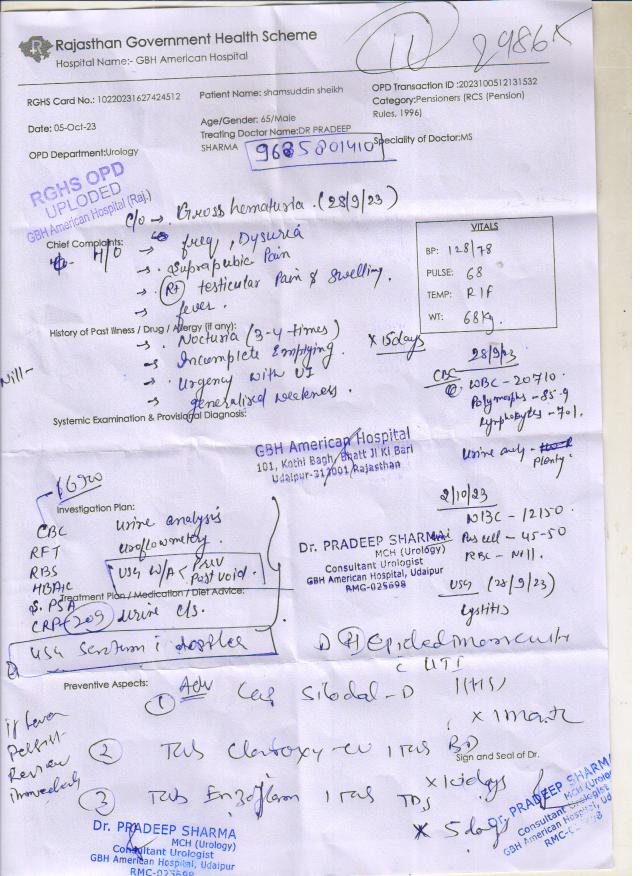 Rajasthan Government Health Scheme
Hospital Name:- GBH American Hospital
11
2986
RGHS Card No.: 10220231627424512
Patient Name: shamsuddin sheikh
OPD Transaction ID :2023100512131532
Category:Pensioners (RCS (Pension) Rules, 1996)
Date: 05-Oct-23
Age/Gender: 65/Male
Treating Doctor Name:DR PRADEEP SHARMA
Speciality of Doctor:MS
OPD Department:Urology
9685801410
RGHS OPD
UPLODED
GBH American Hospital (Raj.)
C/O → Gross hematuria. (28/9/23)
Chief Complaints:
H/O → freq, Dysuria
→ Suprapubic Pain
→ Rt testicular Pain & Swelling.
→ fever.
VITALS
BP: 128/78
PULSE: 68
TEMP: R/F
WT: 68kg.
History of Past Illness / Drug / Allergy (if any):
Nill-
→ Nocturia (3-4-times)
→ Incomplete Emptying.
→ Urgency with UI
→ generalised weakness.
x 15days
28/9/23
CBC
WBC - 20710
Polymorphs - 85.9
Lymphocytes -
Urine
Plenty.
Systemic Examination & Provisional Diagnosis:
GBH American Hospital
101, Kothi Bagh, Bhatt Ji Ki Bari
Udaipur-313001 Rajasthan
Investigation Plan:
CBC urine analysis
RFT uroflowmetry.
RBS USG W/A < Prev Post void.
HBAIC
S. PSA
Treatment Plan / Medication / Diet Advice:
CRP urine c/s.
USG Scrotum
2/10/23
WBC - 12150
Pus cell - 45-50
RBC - Nill.
USG (28/9/23)
Cystitis
Dr. PRADEEP SHARMA
MCH (Urology)
Consultant Urologist
GBH American Hospital, Udaipur
RMC-025698
UTI
Preventive Aspects:
Adv
① Cap Silodal-D 1(HS)
x 1 month
if fever
Persist
Review
immediately
② Tab 1 Tab BD
x 10 days
Sign and Seal of Dr.
③ Tab Enzoflam 1 Tab TDS
x 5 days
Dr. PRADEEP SHARMA
MCH (Urology)
Consultant Urologist
GBH American Hospital, Udaipur
RMC-025698
Dr. PRADEEP SHARMA
MCH (Urology)
Consultant Urologist
GBH American Hospital, Udaipur